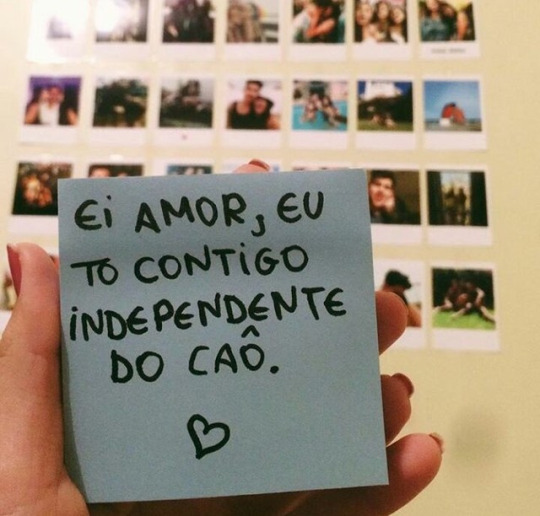 Ei AMOR, EU
TÔ CONTiGO
iNDEPENDENTE
DO CAÔ.